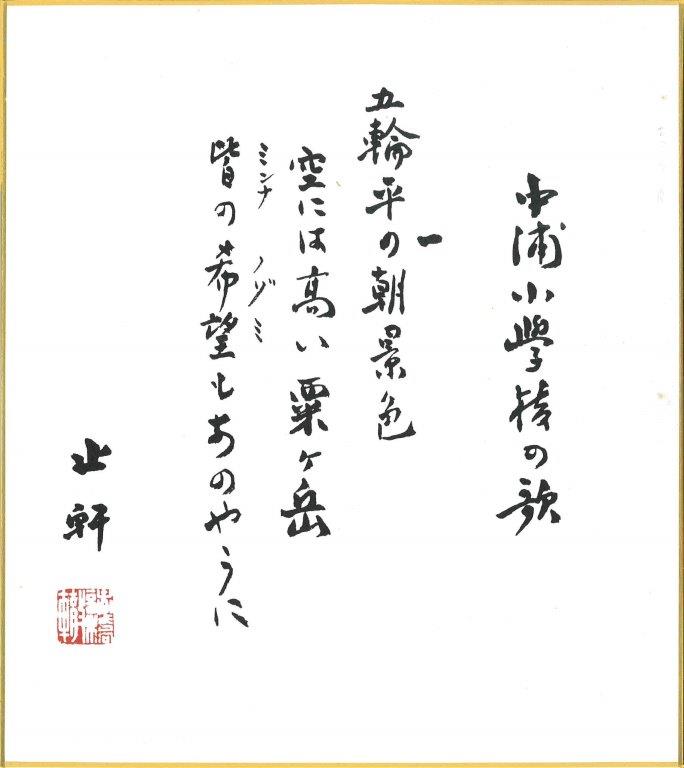 中浦小學校の歌
一
五輪平の朝景色
空には高い粟ヶ岳
ミンナ ノゾミ
皆の希望もあのやうに
止軒